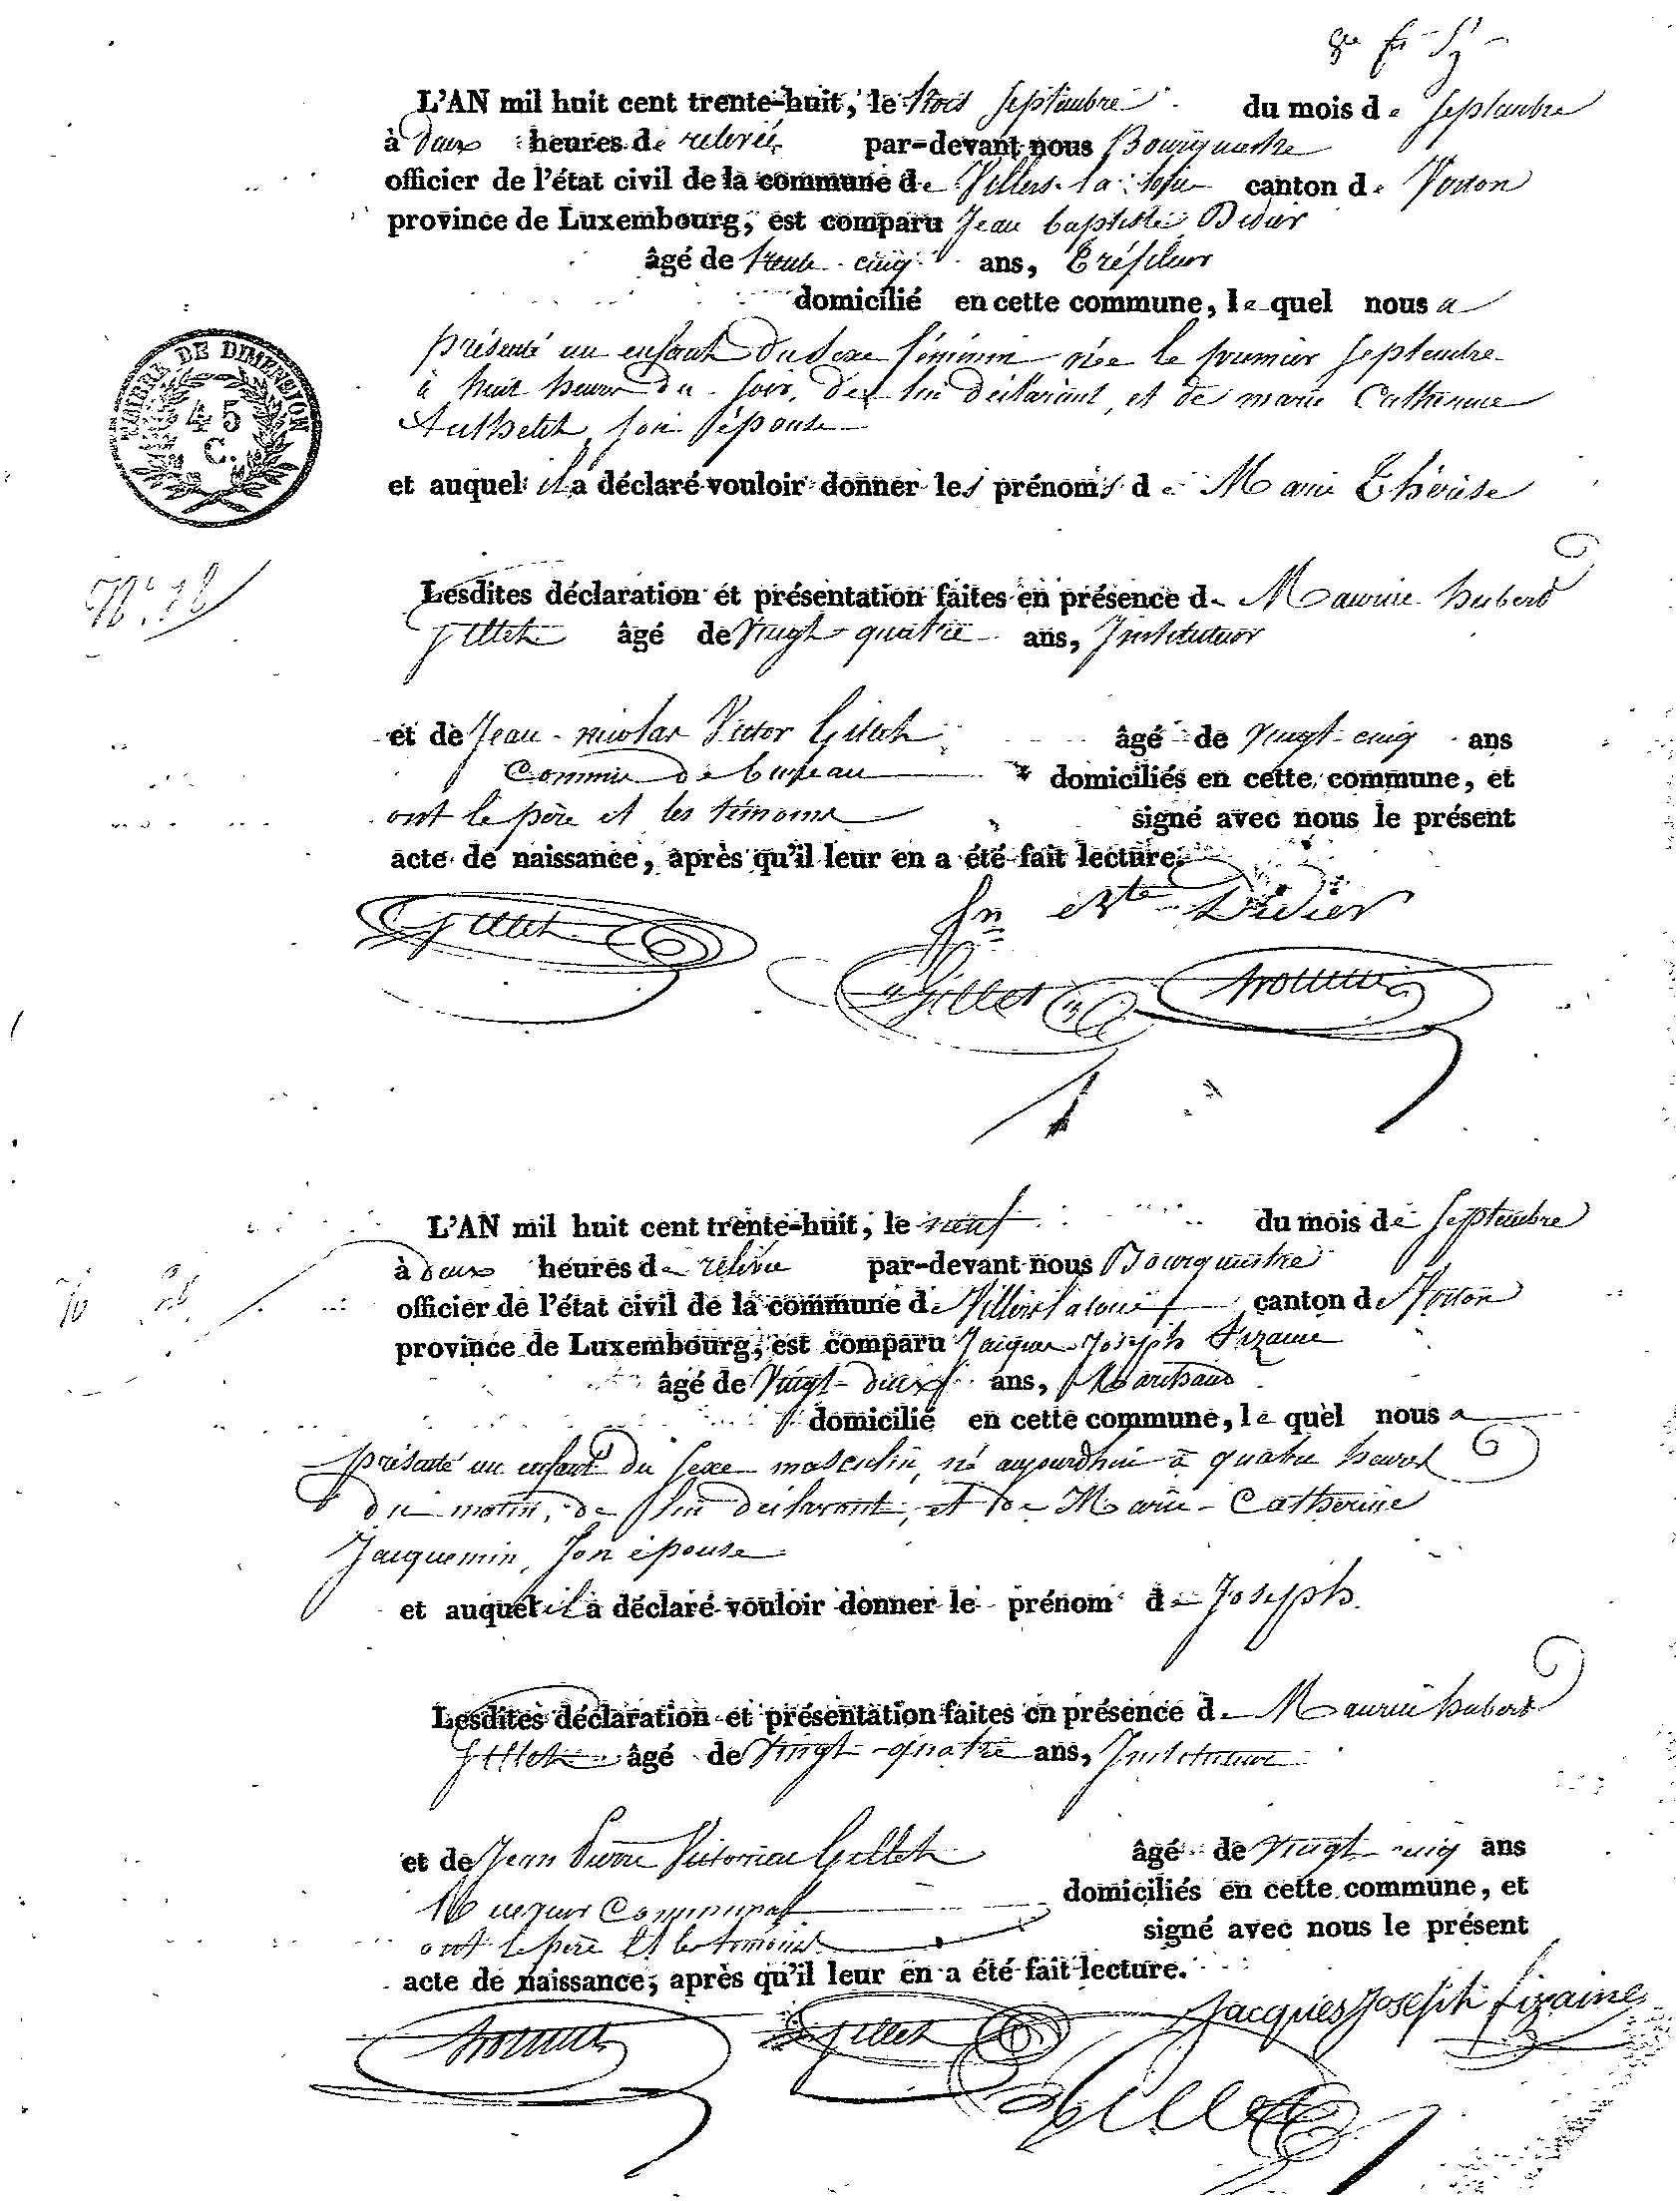 L'AN mil huit cent trente-huit, le trois septembre du mois de septembre
à deux heures de relevée par-devant nous Bourguestre
officier de l'état civil de la commune de Villers-la-loue canton de Virton
province de Luxembourg, est comparu Jean baptiste Didier
âgé de trente-cinq ans, Tréfileur
domicilié en cette commune, le quel nous a
présenté un enfant du sexe féminin née le premier septembre
TIMBRE DE DIMENSION
45
C.
à huit heures du soir, de lui déclarant, et de marie Catherine
son épouse
et auquel il a déclaré vouloir donner les prénoms de Marie Thérèse
N°
Lesdites déclaration et présentation faites en présence de Maurice hubert
gillet âgé de vingt quatre ans, Instituteur
et de Jean-nicolas Victor Gillet âgé de vingt-cinq ans
Commis de bureau domiciliés en cette commune, et
ont le père et les témoins signé avec nous le présent
acte de naissance, après qu'il leur en a été fait lecture.
gillet Jn Bte Didier
Gillet
L'AN mil huit cent trente-huit, le neuf du mois de septembre
à deux heures de relevée par-devant nous Bourguestre
officier de l'état civil de la commune de Villers la loue canton de Virton
province de Luxembourg, est comparu Jacques Joseph Fizaine
âgé de Vingt-deux ans, Marchand
domicilié en cette commune, le quel nous a
présenté un enfant du sexe masculin, né aujourdhui à quatre heures
du matin, de lui déclarant, et de Marie-Catherine
Jacquemin, son épouse
et auquel il a déclaré vouloir donner le prénom de Joseph
Lesdites déclaration et présentation faites en présence de Maurice hubert
gillet âgé de vingt-quatre ans, Instituteur
et de Jean Pierre Gillet âgé de vingt-cinq ans
Communal domiciliés en cette commune, et
ont le père et les témoins signé avec nous le présent
acte de naissance, après qu'il leur en a été fait lecture.
gillet Jacques Joseph fizaine
Gillet